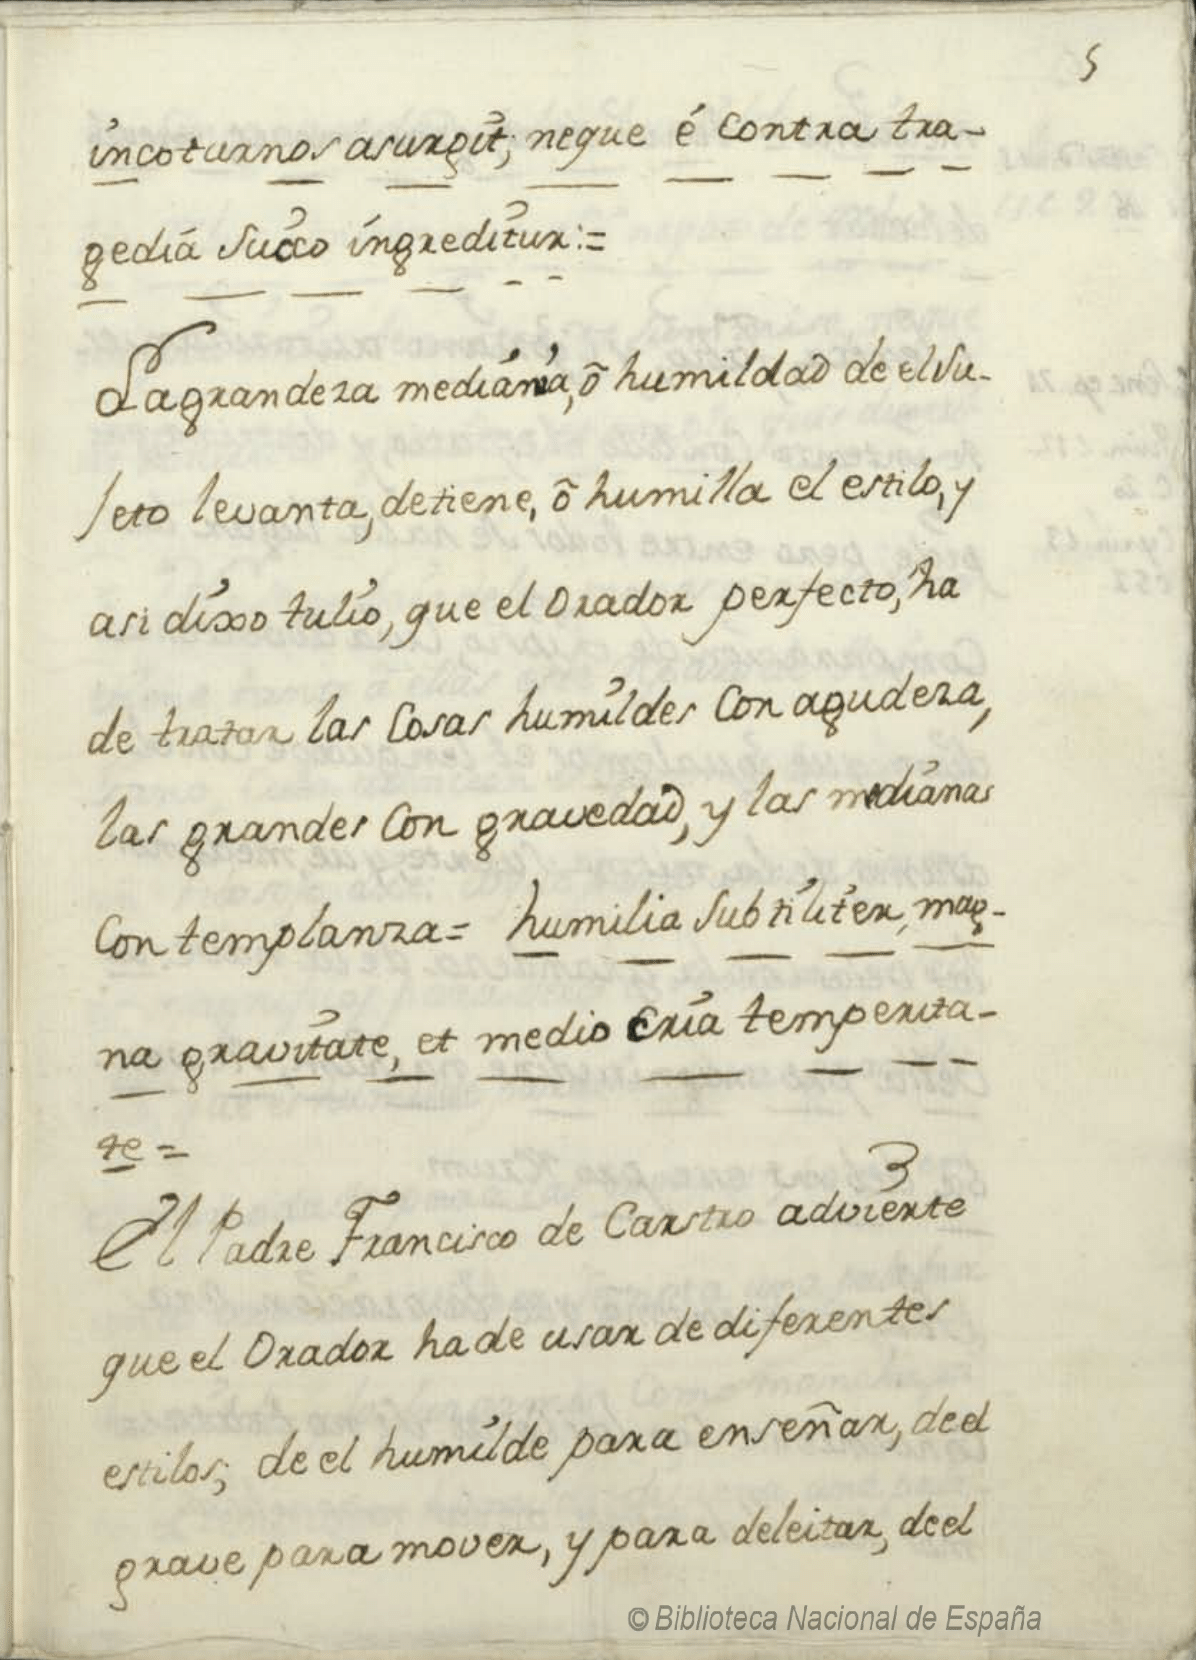 5
incoturnos asurgit; neque é contra tra-
gediá Succo ingreditur:=
La grandeza mediána, õ humildad de el Su-
Jeto levanta, detiene, õ humilla el estilo, y
asi dixo tulio, que el Orador perfecto, ha
de tratar las Cosas humildes Con agudeza,
las grandes Con gravedad, y las medianas
Con templanza= humilia Subtiliter, mag-
na gravitate, et medio cria temperita-
te =
3
El Padre Francisco de Carstro advierte
que el Orador ha de usar de diferentes
estilos; de el humilde para enseñar, de el
grave para mover, y para deleitar, de el
© Biblioteca Nacional de España